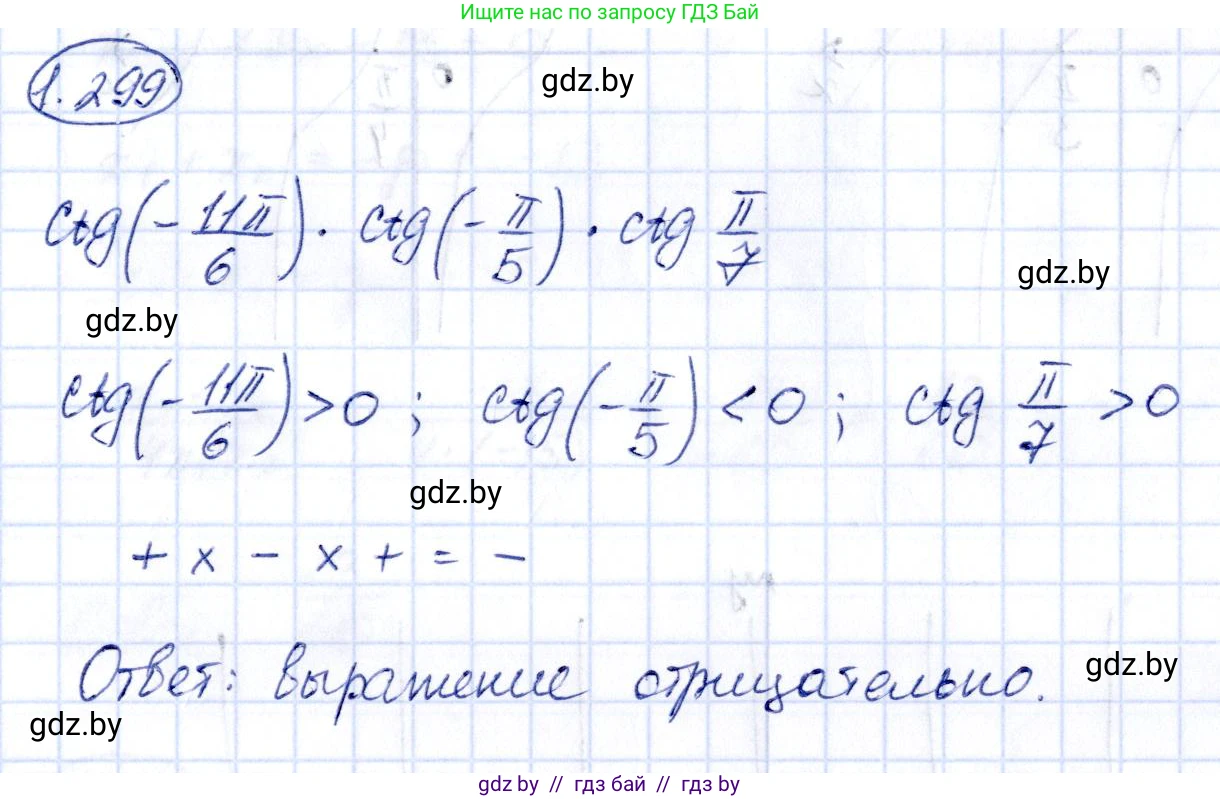 Ищите нас по запросу ГДЗ Бай
1.299
gdz.by
ctg(-11π/6) · ctg(-π/5) · ctg π/7
gdz.by
gdz.by
ctg(-11π/6) > 0 ; ctg(-π/5) < 0 ; ctg π/7 > 0
gdz.by
+ x - x + = -
Ответ: выражение отрицательно.
gdz.by
gdz.by
gdz by // гдз бай // гдз by